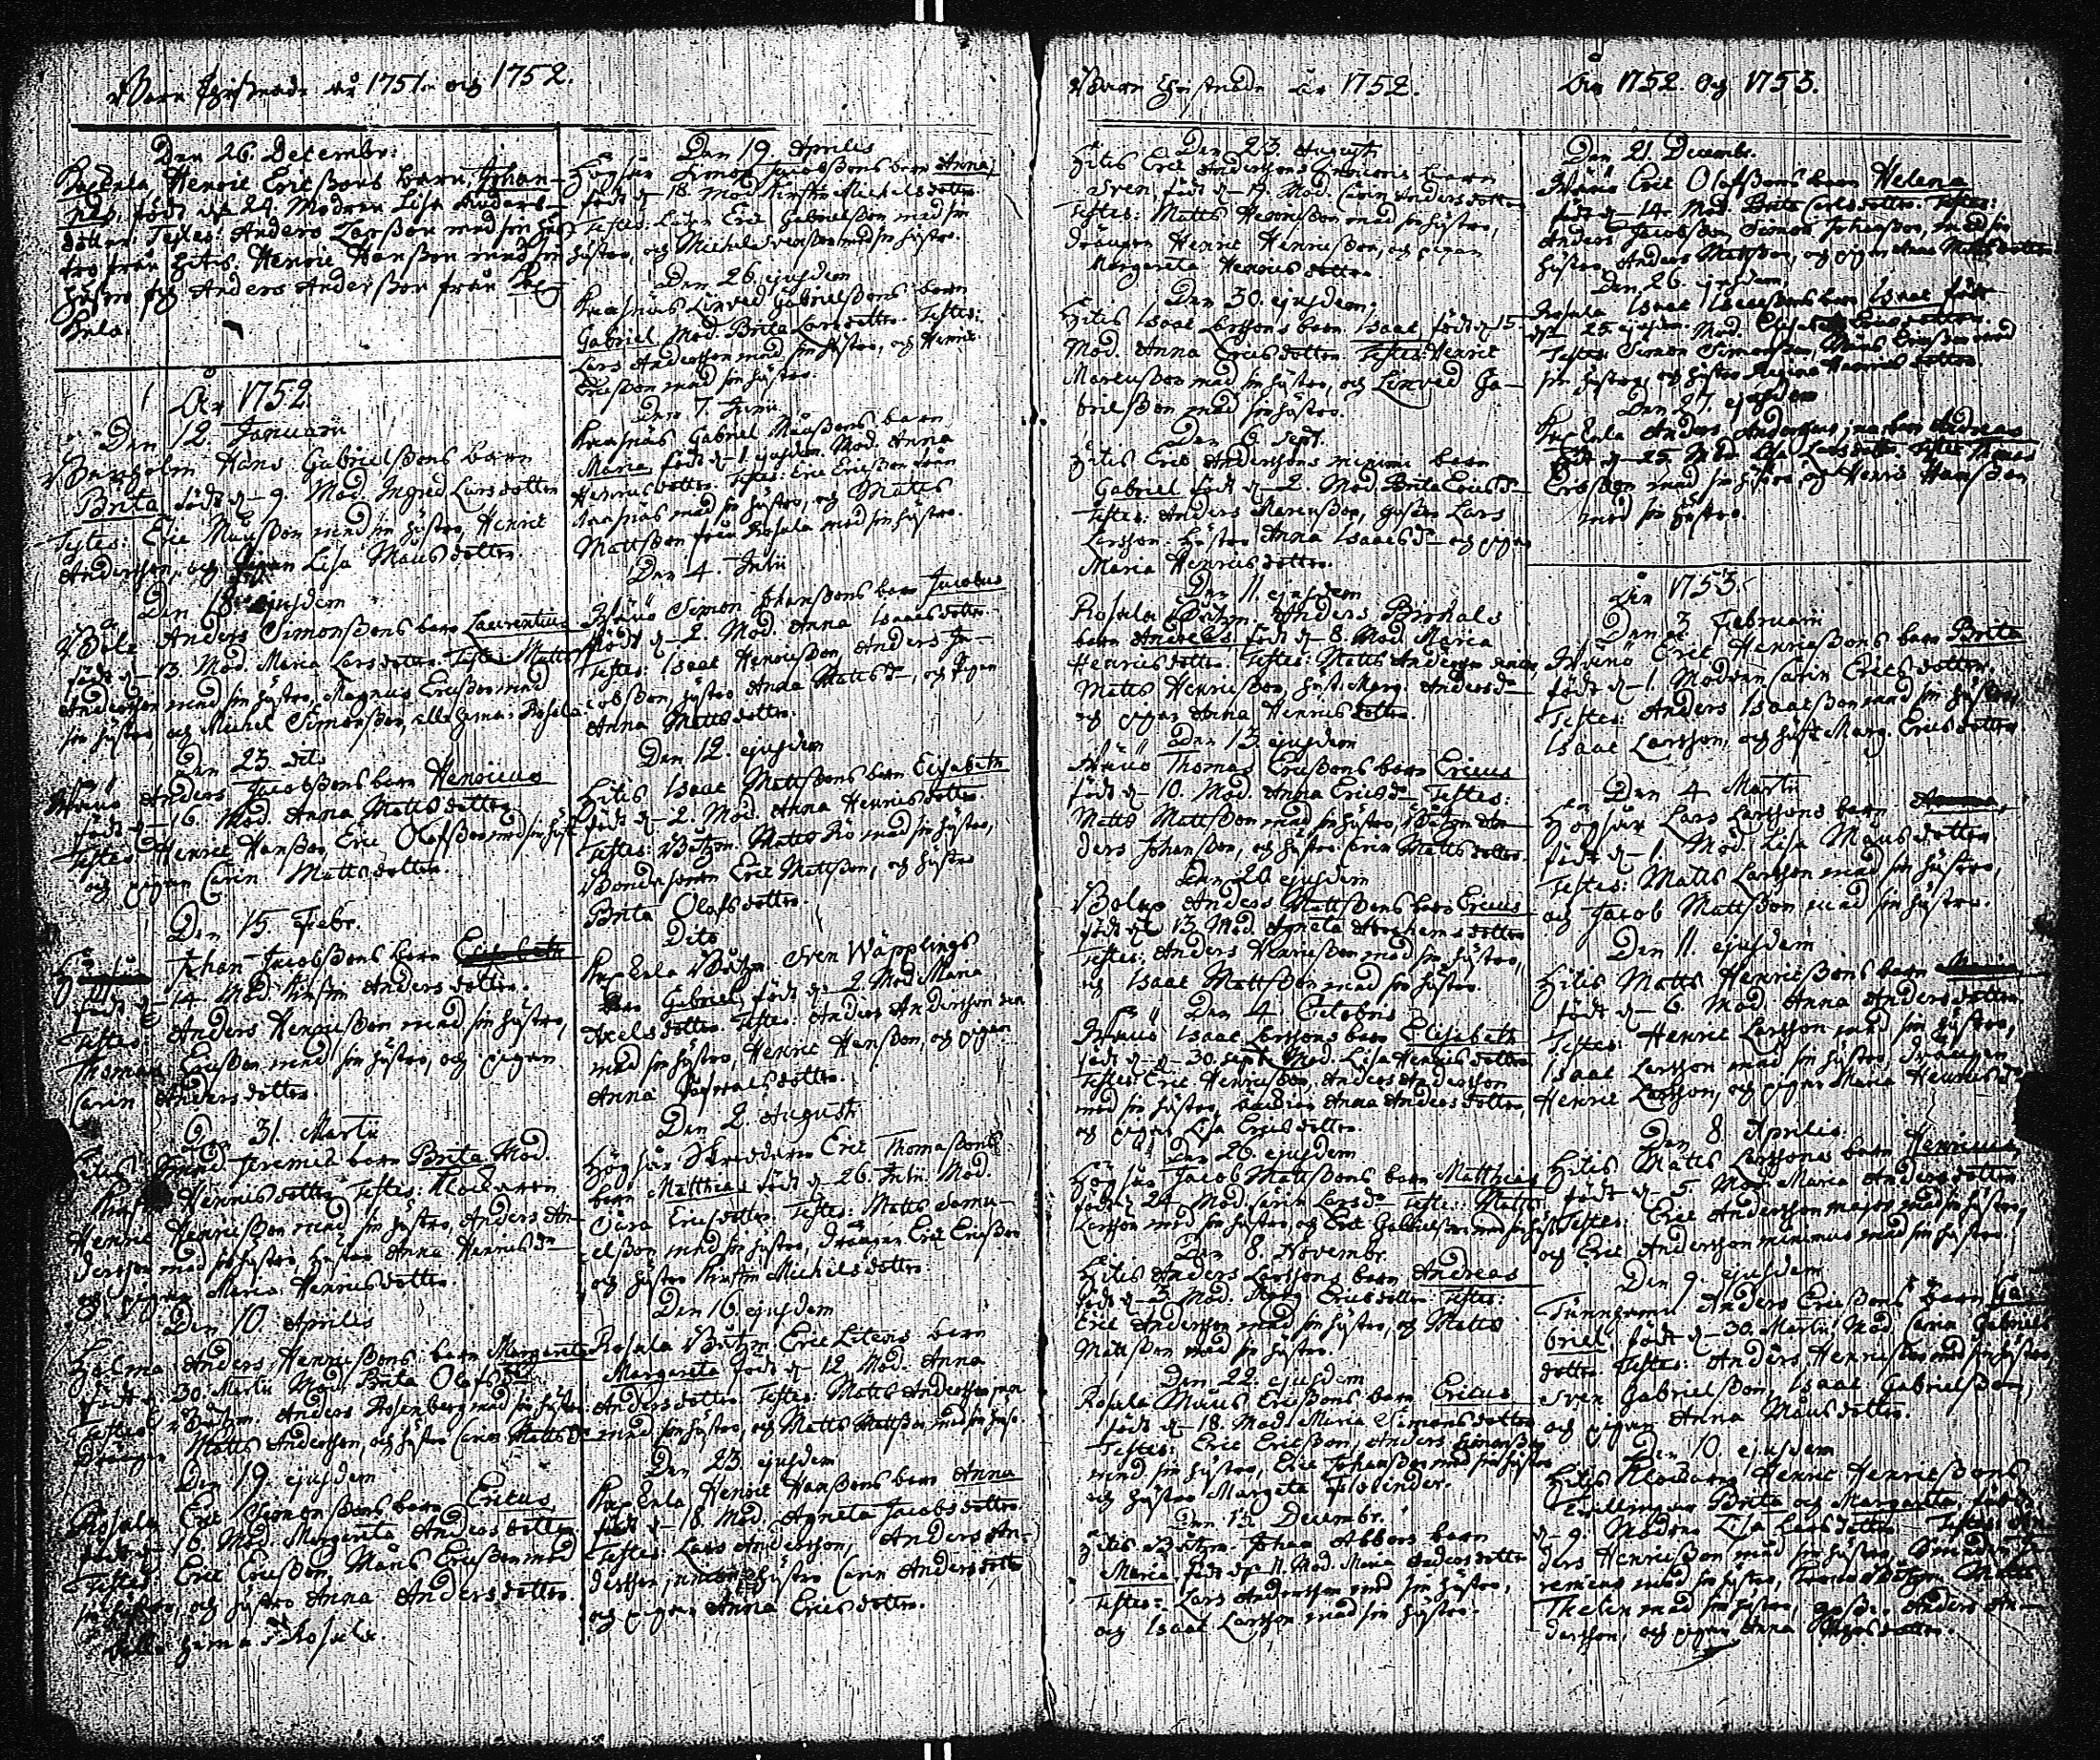 Barn Christnade år 1751. och 1752.
Den 26. Decembr:
Henric Ericssons barn, Johan-
nes, född d. 24. Modren Lisa Anders-
dotter. Testes: Anders Larsson med sin hust-
ro från Hitis. Henric Hansson med sin
hustro och Anders Andersson från
År 1752.
Den 12. Januarii
Hans Gabrielssons barn
Brita född d. 9. Mod. Ingred Larsdotter
Testes: Eric Månsson med sin hustro, Henric
Andersson, och Pigan Lisa Månsdotter.
Den 18. ejusdem
Böle Anders Simonssons barn Laurentius
född d. 13. Mod. Maria Larsdotter. Testes Matts
Andersson med sin hustro, Magnus Ericsson med
sin hustro, och Michel Simonsson, alla hema i Rosala.
Den 23. dito
Wänö Anders Jacobssons barn Henricus
född d. 16. Mod. Anna Mattsdotter
Testes Henric Hansson, Eric Olofsson med sin hustr.
och pigan Carin Mattsdotter.
Den 15. Febr.
Johan Jacobssons barn Elisabeth
född d. 14. Mod. Kirstin Andersdotter.
Testes: Anders Henricsson med sin hustro,
Thomas Ericsson med sin hustro, och pigan
Carin Andersdotter.
Den 31. Martii
Hitis Jeremiæ barn Brita Mod.
Henricsdotter Testes: Klockaren
Henric Henricsson med sin hustro, Anders An-
dersson med sin hustro, hustro Anna Henricsd:
och pigan Maria Henricsdotter.
Den 10. Aprilis
Holma Anders Henricssons barn Margareta
född d. 30. Martii Mod. Brita Olofsd:
Testes: Båtzm. Anders Rosenberg med sin hustro.
Drängen Matts Andersson, och hustro Carin Mattsd:
Den 19. ejusdem
Rosala Eric Simonssons barn Ericus
född d. 16. Mod. Margareta Andersdotter
Testes: Eric Ericsson, Måns Ericsson med
sin hustro, och hustro Anna Andersdotter
alla hema i Rosala.
Den 19. Aprilis
Högsår Simon Jacobssons barn Anna,
född d. 18. Mod. Kirstin Michelsdotter
Testes: Eric Gabrielsson med sin
hustro, och Michel Svensson med sin hustro.
Den 26. ejusdem
Kasnäs Linved Gabrielssons barn
Gabriel. Mod. Brita Larsdotter. Testes:
Lars Andersson med sin hustro, och Henric
Ericsson med sin hustro.
Den 7. Junii
Kasnäs Gabriel Månssons barn
Maria född d. 1. ejusdem. Mod. Anna
Henricsdotter. Testes: Eric Ericsson från
Kasnäs med sin hustro, och Matts
Mattsson från Rosala med sin hustro.
Den 4. Julii
Wänö Simon Johanssons barn Jacobus
född d. 2. Mod. Anna Isaacsdotter
Testes: Isaac Henricsson, Anders Ja-
cobsson, hustro Anna Mattsd:, och Pigan
Anna Mattsdotter.
Den 12. ejusdem
Hitis Isaac Mattssons barn Elisabeth
född d. 2. Mod. Anna Henricsdotter.
Testes: Båtzm. Matts med sin hustro,
Bondesonen Eric Mattsson, och hustro
Brita Olofsdotter.
Dito
Båtzm. Sven Wäpplings
barn Gabriel, född d. 2. Mod. Maria
Axelsdotter. Testes: Anders Andersson
med sin hustro, Henric Hansson, och pigan
Anna
Den 2. Augusti
Högsår Skreddaren Eric Thomassons
barn Matthias född d. 26. Julii. Mod.
Ericsdotter. Testes: Matts Samu-
elsson med sin hustro, Drängen Eric Ericsson
och hustro Kirstin Michelsdotter.
Den 16. ejusdem
Rosala Båtzm. Eric Litens barn
Margareta född d. 12. Mod. Anna
Andersdotter. Testes: Matts Andersson
med sin hustro, och Matts Mattsson med sin hust.
Den 23. ejusdem
Henric Hanssons barn Anna
född d. 18. Mod. Agneta Jacobsdotter.
Testes: Lars Andersson, Anders An-
dersson, hustro Carin Andersdotter
och pigan Anna Ericsdotter.
Barn Christnade år 1752.
Den 23. Augusti
Hitis Eric Anderssons junioris barn
Sven, född d. 19. Mod. Carin Andersdotter
Testes: Matts Henricsson med sin hustro,
Drängen Henric Henricsson, och pigan
Margareta Henricsdotter.
Den 30. ejusdem,
Hitis Isaac Larssons barn Isaac född d. 15.
Mod. Anna Ericsdotter. Testes: Henric
Marcusson med sin hustro, och Linved Ga-
brielsson med sin hustro.
Den 6. Sept.
Hitis Eric Anderssons minimi barn
Gabriel född d. 2. Mod. Brita Ericsd:
Testes: Anders Marcusson, Lars
Larsson. Hustro Anna Isaacsd: och pigan
Maria Henricsdotter.
Den 11. ejusdem
Rosala Båtzm. Anders Birkals
barn Andreas född d. 8. Mod. Maria
Henricsdotter. Testes: Matts Andersson
Matts Henricsson, hust. Marg. Andersd:
och pigan Anna Henricsdotter.
Den 13. ejusdem
Wänö Thomas Ericssons barn Ericus
född d. 10. Mod. Anna Ericsd: Testes:
Matts Mattsson med sin hustro, Båtzm An-
ders Johansson, och hustro Carin Mattsdotter.
Den 20. ejusdem
Anders Mattssons barn Ericus
född d. 13. Mod. Agneta Abrahamsdotter
Testes: Anders Henricsson med sin hustro,
och Isaac Mattsson med sin hustro.
Den 4. Octobris
Wänö Isaac Larssons barn Elisabeth
född d. 30. Sept. Mod. Lisa Henricsdotter
Testes: Eric Henricsson, Anders Andersson
med sin hustro, Anna Andersdotter,
och pigan Lisa Ericsdotter.
Den 26. ejusdem
Högsår Jacob Mattssons barn Matthias
född d. 24. Mod. Carin Larsd: Testes: Matts
Larsson med sin hustro, och Eric Gabrielsson med sin hust.
Den 8. Novembr.
Hitis Anders Larssons barn Andreas
född d. 3. Mod. Marg. Ericsdotter. Testes:
Eric Andersson med sin hustro, och Matts
Mattsson med sin hustro.
Den 22. ejusdem
Rosala Måns Ericssons barn Ericus
född d. 18. Mod. Maria Simonsdotter
Testes: Eric Ericsson, Anders Simonsson
med sin hustro, Eric Johansson med sin hustro
och hustro Margeta Flolinder.
Den 13. Decembr.
Hitis Båtzm. Johan Abbors barn
Maria, född d. 11. Mod. Maria Andersdotter
Testes: Lars Andersson med sin hustro,
och Isaac Larsson med sin hustro.
År 1752. och 1753.
Den 21. Decembr.
Wänö Eric Olofssons barn Helena
född d. 14. Mod. Brita Carlsdotter. Testes:
Anders Jacobsson, Simon Johansson, med sin
hustro, Anders Mattsson, och pigan Anna Mattsdotter
Den 26. ejusdem,
Rosala Isaac Isaacssons barn Isaac född
d. 25. ejusdem. Mod. Elisabeth Ericsdotter.
Testes: Simon Simonsson, Måns Ericsson med
sin hustro, och hustro Regina Henricsdotter.
Den 27. ejusdem
Anders Anderssons barn Andreas
född d. 25. Mod. Lisa Larsdotter. Testes Thomas
Ericsson med sin hustro, och Henric Hansson
med sin hustro.
År 1753.
Den 2. Februarii
Wänö Eric Henricssons barn Brita
född d. 1. Modren Carin Ericsdotter.
Testes: Anders Isaacsson med sin hustro,
Isaac Larsson, och hust. Marg. Ericsdotter.
Den 4 Martii
Högsår Lars Larssons barn
född d. 1. Mod. Lisa Månsdotter
Testes: Matts Larsson med sin hustro,
och Jacob Mattsson med sin hustro.
Den 11. ejusdem
Hitis Matts Henricssons barn Maria
född d. 6. Mod. Anna Andersdotter.
Testes: Henric Larsson med sin hustro,
Isaac Larsson med sin hustro, Drängen
Henric Larsson, och pigan Maria Henricsd:
Den 8. Aprilis.
Hitis Matts Larssons barn Henricus,
född d. 5. Mod. Maria Andersdotter
Testes: Eric Andersson major med sin hustro,
och Eric Andersson minimus med sin hustro.
Den 9. ejusdem
Anders Ericssons barn Ga-
briel, född d. 30. Martii, Mod. Gabriels
dotter. Testes: Anders Henricsson med sin hustro,
Sven Gabrielsson, Isaac Gabrielsson,
och pigan Anna Månsdotter.
Den 10. ejusdem
Hitis Klockaren Henric Henricssons
Tvillingar Brita och Margareta, födde
d. 9. Modren Lisa Larsdotter. Testes: An-
ders Henricsson med sin hustro, Smeden Je-
remias med sin hustro, Båtzm. Matts
Thelin med sin hustro, Anders An-
dersson, och pigan Anna